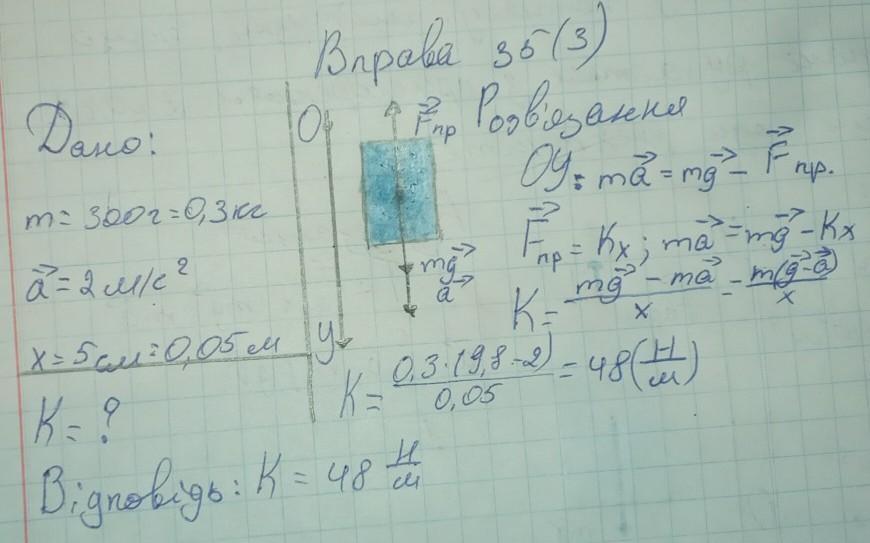 Вправа 35(3)
Дано:
m = 300г = 0,3кг
a⃗ = 2 м/с²
x = 5см = 0,05м
K = ?
O
y
F⃗пр
mg⃗
a⃗
Розв'язання
OY: ma⃗ = mg⃗ - F⃗пр.
F⃗пр = Kx; ma⃗ = mg⃗ - Kx
K = (mg⃗ - ma⃗)/x = m(g⃗-a⃗)/x
K = 0,3·(9,8-2)/0,05 = 48(Н/м)
Відповідь: K = 48 Н/м